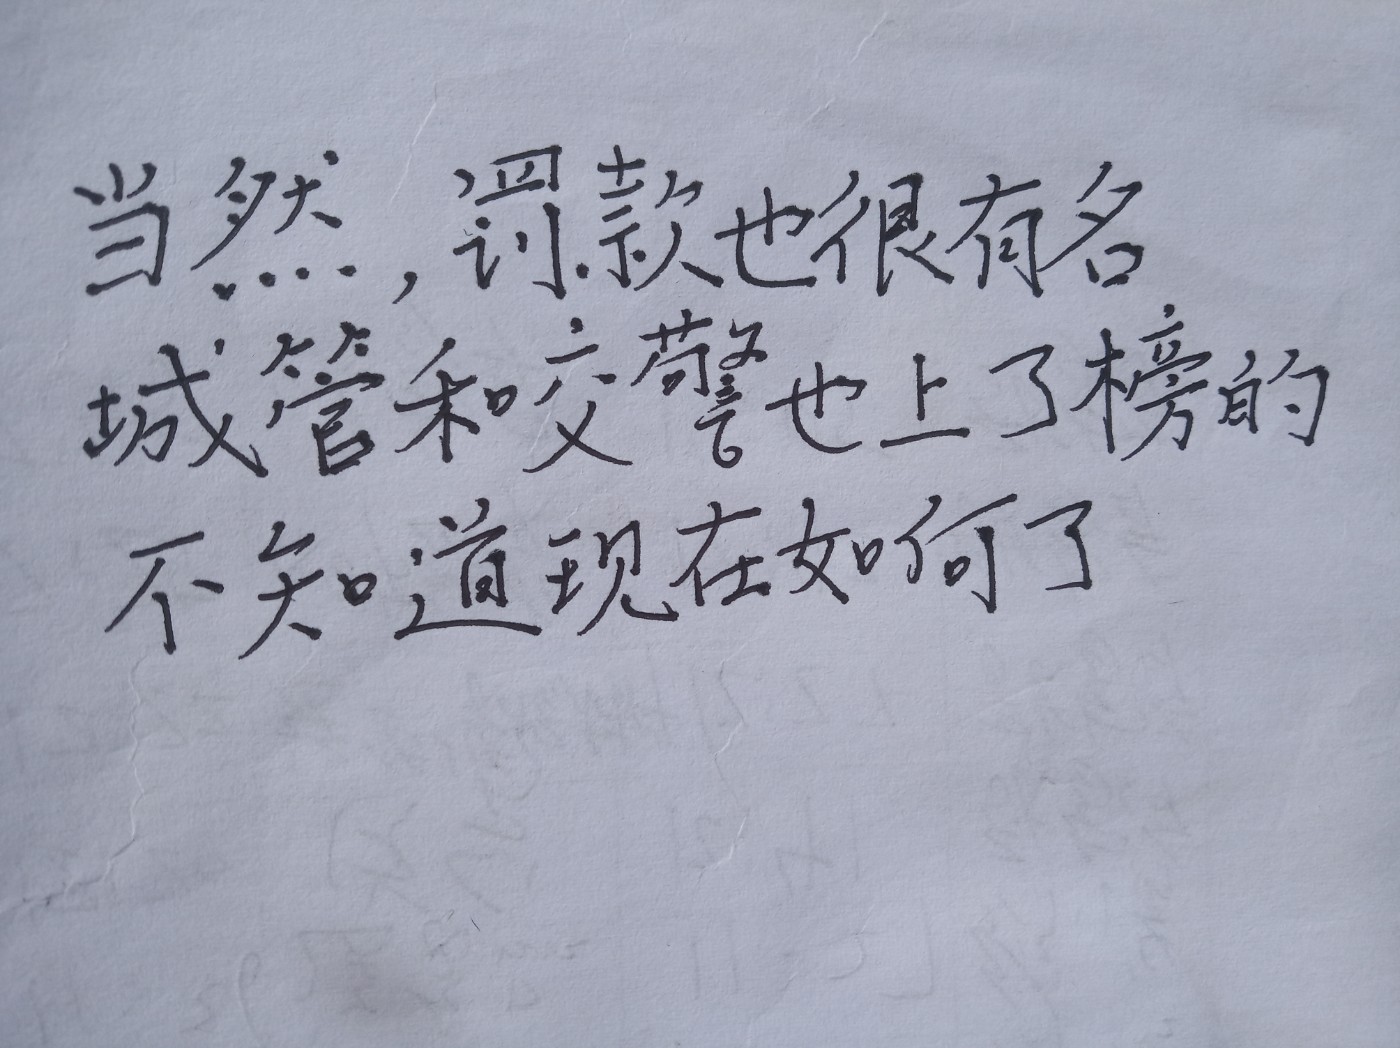 当然，罚款也很有名
城管和交警也上了榜的
不知道现在如何了